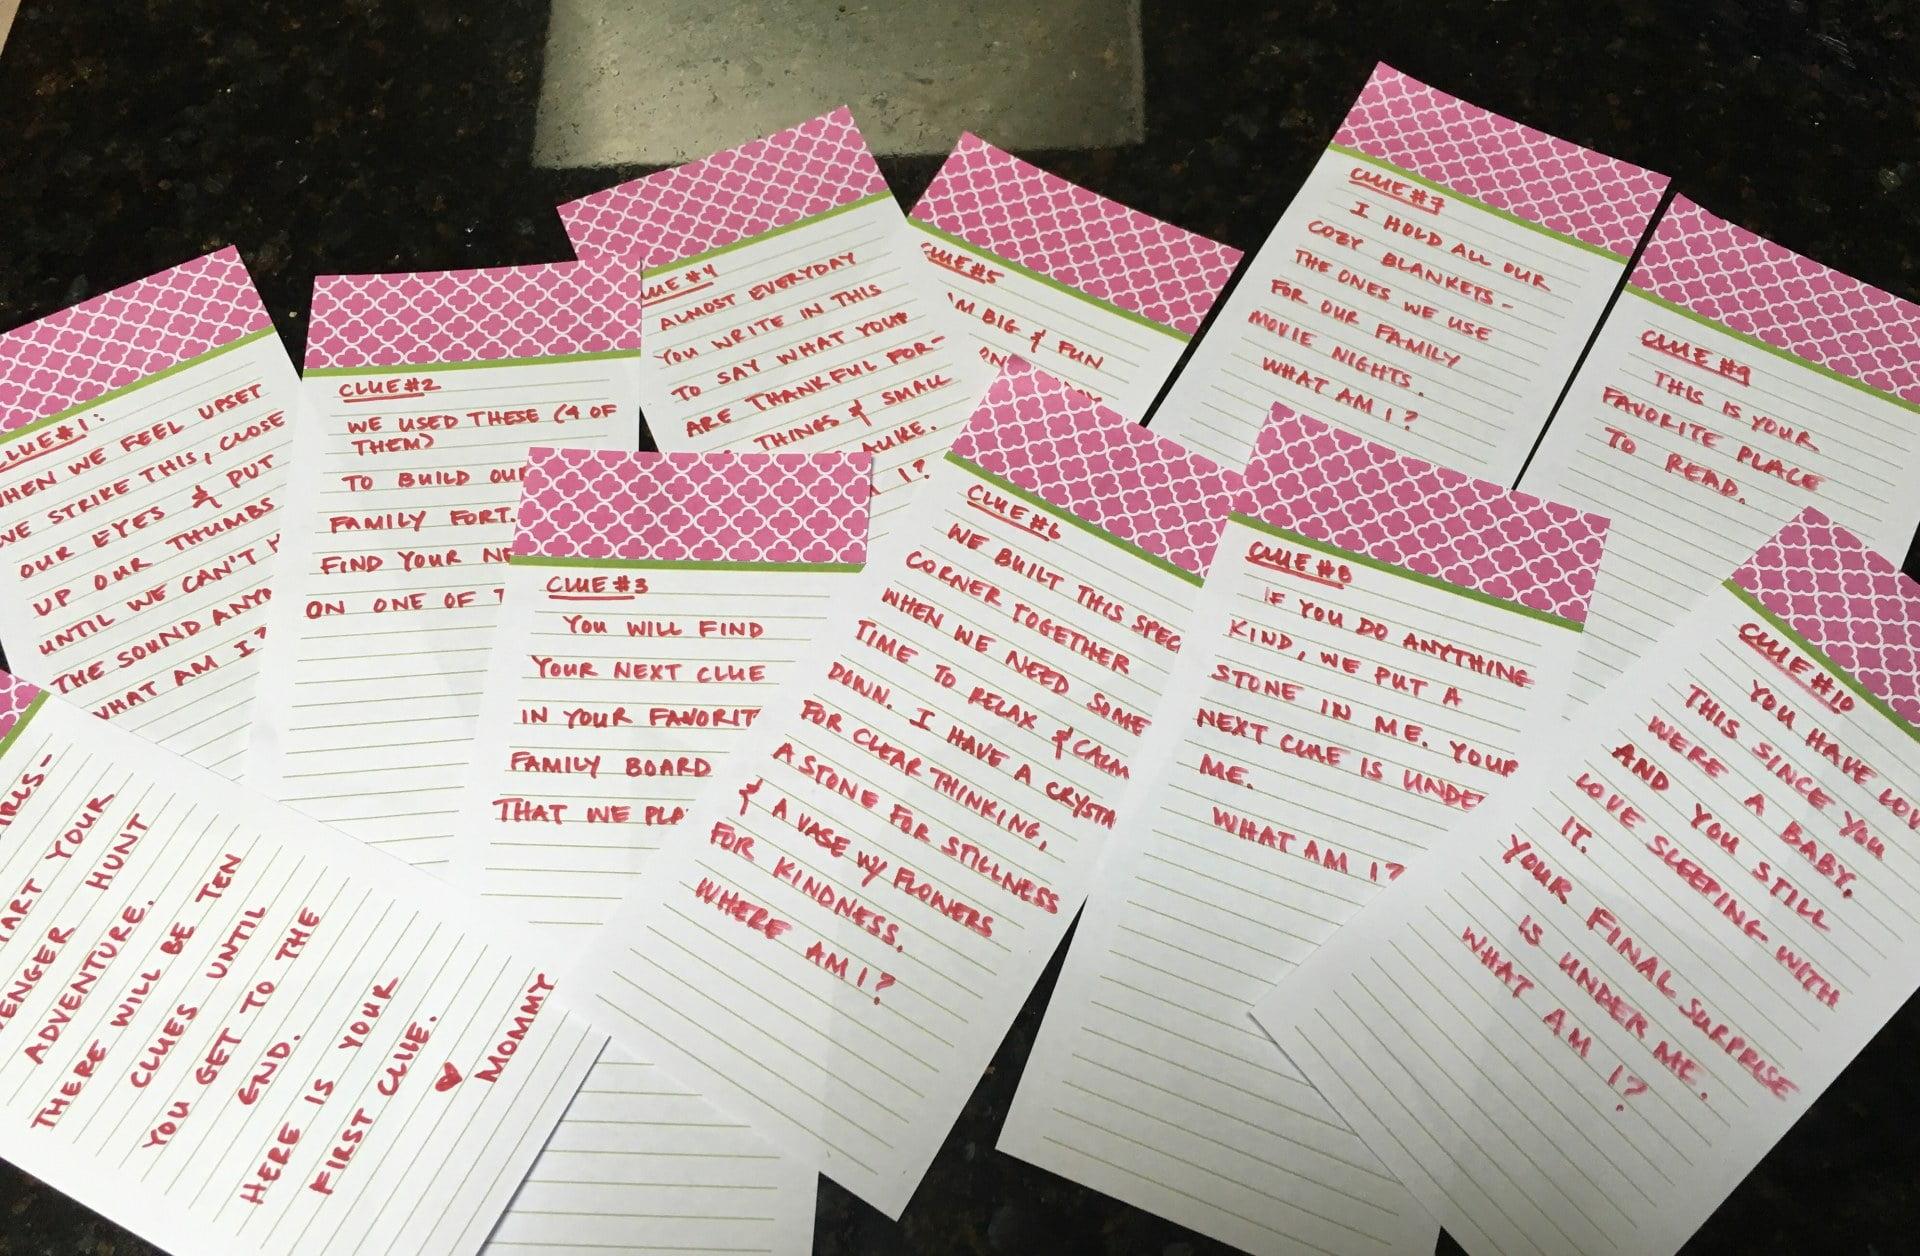 CLUE #1:
WHEN WE FEEL UPSET
WE STRIKE THIS, CLOSE
OUR EYES & PUT
UP OUR THUMBS
UNTIL WE CAN'T
THE SOUND
WHAT AM I?
CLUE #2
WE USED THESE (4 OF
THEM)
TO BUILD OUR
FAMILY FORT.
FIND YOUR
ON ONE OF
CLUE #3
YOU WILL FIND
YOUR NEXT CLUE
IN YOUR FAVORIT
FAMILY BOARD
THAT WE PLA
CLUE #4
ALMOST EVERYDAY
YOU WRITE IN THIS
TO SAY WHAT YOU
ARE THANKFUL FOR-
THINGS & SMALL
ALIKE.
I?
CLUE #5
BIG & FUN
CLUE #6
WE BUILT THIS SPEC
CORNER TOGETHER
WHEN WE NEED SOME
TIME TO RELAX & CALM
DOWN. I HAVE A CRYSTA
FOR CLEAR THINKING,
A STONE FOR STILLNESS
& A VASE W/ FLOWERS
FOR KINDNESS.
WHERE AM I?
CLUE #7
I HOLD ALL OUR
COZY BLANKETS-
THE ONES WE USE
FOR OUR FAMILY
MOVIE NIGHTS.
WHAT AM I?
CLUE #8
IF YOU DO ANYTHING
KIND, WE PUT A
STONE IN ME. YOUR
NEXT CLUE IS UNDE
ME.
WHAT AM I?
CLUE #9
THIS IS YOUR
FAVORITE PLACE
TO READ.
CLUE #10
YOU HAVE LOV
THIS SINCE YOU
WERE A BABY,
AND YOU STILL
LOVE SLEEPING WITH
IT.
YOUR FINAL SURPRISE
IS UNDER ME.
WHAT AM I?
IRLS-
ART YOUR
ENGER HUNT
ADVENTURE.
THERE WILL BE TEN
CLUES UNTIL
YOU GET TO THE
END.
HERE IS YOUR
FIRST CLUE.
♥ MOMMY